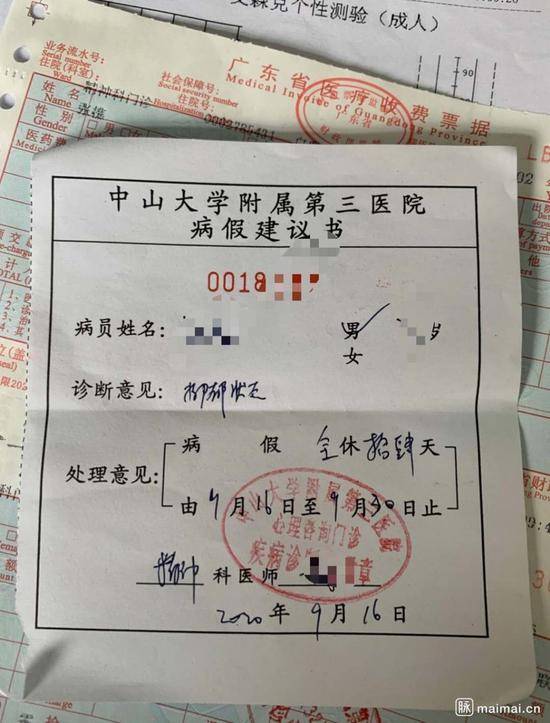 艾森克个性测验（成人）
90
业务流水号：
Serial number
住院（科室）
Ward
精神科门诊
社会保障号：
Social security number
住院号：
Hospitalization
广东省医疗收费票据
Medical Invoice of Guangdong Province
姓名
Name
性别
Gender
医药费
中山大学附属第三医院
病假建议书
0018
病员姓名：
男
女
岁
诊断意见：抑郁状态
处理意见：
病 假 全休 拾肆 天
由 9 月 16 日至 9 月 30 日止
中山大学附属第三医院
心理咨询门诊
疾病诊 章
精神 科医师
2020 年 9 月 16 日
脉 maimai.cn